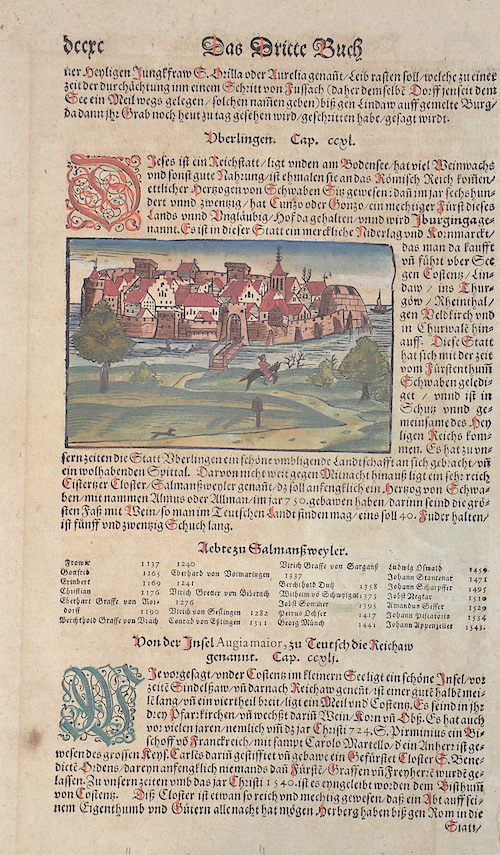 dccxc
Das Dritte Buch
ner Heyligen Jungkfraw S. Orilla oder Aurelia genañt / Leib rasten soll / welche zu einer
zeit der durchächtung inn einem Schritt von Fussach (daher demselbē Dorff jenseit dem
See ein Meil wegs gelegen / solchen nam̃en geben) biß gen Lindaw auff gemelte Burg /
da dann jhr Grab noch heut zu tag gesehen wird / geschritten habe / gesagt wirdt.
Vberlingen. Cap. ccxl.
Dieses ist ein Reichstatt / ligt vnden am Bodensee / hat viel Weinwachs
vnd sonst gute Nahrung / ist ehmalen sie an das Römisch Reich kom̃en /
ettlicher Hertzogen von Schwaben Sitz gewesen: dañ im jar sechshun-
dert vnnd zwentzig / hat Cunzo oder Gonzo / ein mechtiger Fürst dieses
Lands vnnd Vngläubig / Hof da gehalten / vnnd wird Jburgingage-
nannt. Es ist in dieser Statt ein merckliche Niderlag vnd Kornmarckt /
das man da kaufft
vñ führt vber See
gen Costentz / Lin-
daw / ins Thur-
göw / Rheinthal /
gen Veldkirch vnd
in Churwale hin-
auff. Diese Statt
hat sich mit der zeit
vom Fürstenthum̃
Schwaben geledi-
get / vnnd ist in
Schutz vnnd ge-
meinsame des Hey
ligen Reichs kom-
men. Es hat zu vn-
sern zeiten die Statt Vberlingen ein schöne vmbligende Landtschafft an sich gebracht / vñ
ein wolhabenden Spittal. Darvon nicht weit gegen Mitnacht hinauß ligt ein sehr reich
Cistertzer Closter / Salmanßweyler genañt / dz soll anfengklich ein Hertzog von Schwa-
ben / mit nammen Almus oder Allman / im jar 750. gebawen haben / darinn seind die grös-
sten Faß mit Wein / so man im Teutschen Landt finden mag / eins soll 40. Fuder halten /
ist fünff vnd zwentzig Schuch lang.
Aebte zu Salmanßweyler.
Frowic 1137 1240 Vlrich Graffe von Sargans Ludwig Oswald 1459
Gonfrid 1165 Eberhard von Wolmaringen 1337 Johann Stantenat 1471
Erinbert 1169 1241 Berchthold Dutz 1358 Johann Scharpffer 1495
Christian 1176 Vlrich Gretter von Biberach Wilhelm vō Schreylgatz 1373 Jobst Negkar 1510
Eberhart Graffe von Roi- 1276 Jobst Sommer 1395 Amandus Seffer 1529
dorff 1190 Vlrich von Seßlingen 1282 Petrus Ochser 1417 Johann Piscatoris 1534
Berchthold Graffe von Vrach Conrad von Eßlingen 1311 Georg Münch 1441 Johann Appenzeller 1543.
Von der Insel Augia maior, zu Teutsch die Reichaw
genannt. Cap. ccxlj.
Wie vorgesagt / vnder Costentz im kleinern See ligt ein schöne Insel / vor
zeitē Sindeltzaw / vñ darnach Reichaw genent / ist einer gutē halbē mei-
lē lang / vñ ein viertheil breit / ligt ein Meil vnd Costentz. Es seind in jhr
drey Pfarrkirchen / vñ wechßt darin̄ Wein / Korn vñ Obß. Es hat auch
vor vielen jaren / nemlich vm̃ dz jar Christi 724. S. Pirminius ein Bi-
schoff vß Franckreich / mit sampt Carolo Martello / d' ein Anherr ist ge-
wesen des grossen Keys. Carles darin̄ gestifftet vñ gebawē ein Gefürstet Closter S. Bene-
dictē Ordens / dareyn anfenglich niemands dañ Fürstē / Graffen vñ Freyherrē wurdē ge-
lassen. Zu vnsern zeiten vmb das jar Christi 1540. ist es eyngeleibt worden dem Bisthum̃
von Costentz. Diß Closter ist etwan so reich vnd mechtig gewesen / daß ein Abt auff sei-
nem Eigenthumb vnd Gütern alle nacht hat mögen Herberg haben biß gen Rom in die
Statt /